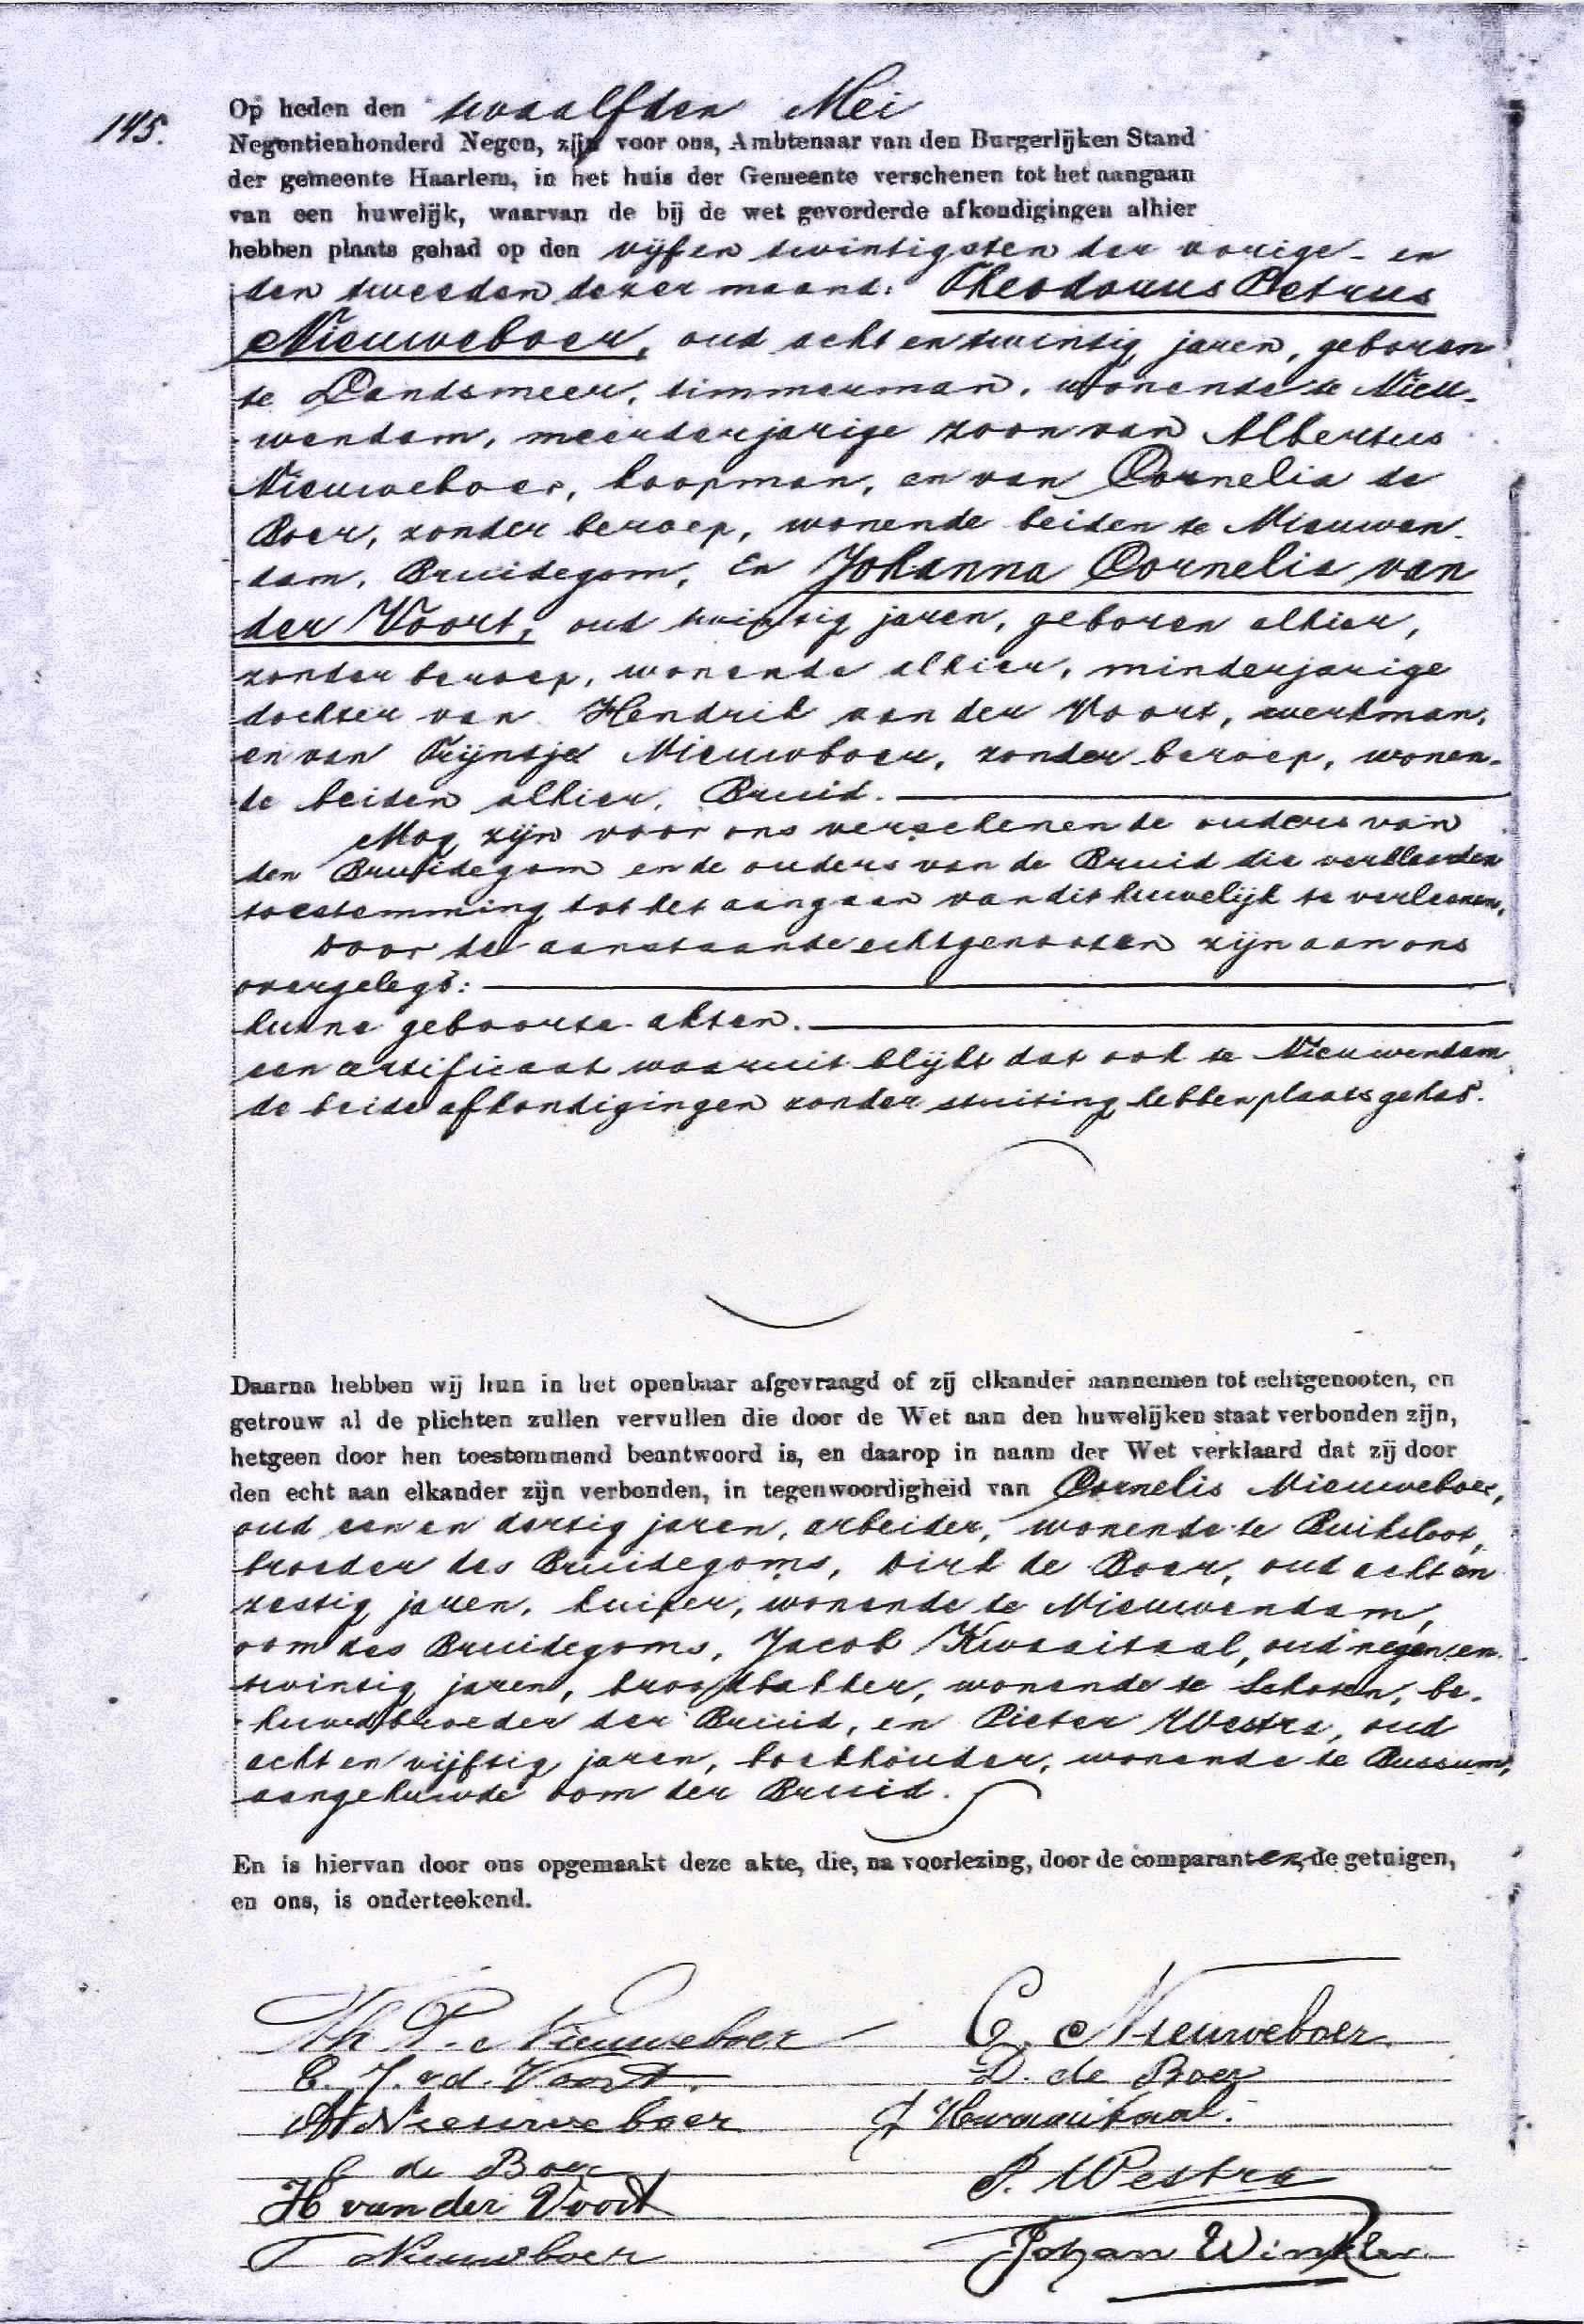 145.
Op heden den twaalfden Mei
Negentienhonderd Negen, zijn voor ons, Ambtenaar van den Burgerlijken Stand
der gemeente Haarlem, in het huis der Gemeente verschenen tot het aangaan
van een huwelijk, waarvan de bij de wet gevorderde afkondigingen alhier
hebben plaats gehad op den vijfentwintigsten der vorige en
den tweeden dezer maand: Theodorus Petrus
Nieuweboer, oud acht en twintig jaren, geboren
te Landsmeer, timmerman, wonende te Nieu-
wendam, meerderjarige zoon van Albertus
Nieuweboer, koopman, en van Cornelia de
Boer, zonder beroep, wonende beiden te Nieuwen-
dam, Bruidegom, En Johanna Cornelia van
der Voort, oud twintig jaren, geboren alhier,
zonder beroep, wonende alhier, minderjarige
dochter van Hendrik van der Voort, werkman,
en van Trijntje Nieuwboer, zonder beroep, wonen-
de beiden alhier, Bruid.
Nog zijn voor ons verschenen de ouders van
den Bruidegom en de ouders van de Bruid die verklaarden
toestemming tot het aangaan van dit huwelijk te verleenen.
Door de aanstaande echtgenooten zijn aan ons
overgelegd:
hunne geboorte akten.
een certificaat waaruit blijkt dat ook te Nieuwendam
de beide afkondigingen zonder stuiting hebben plaats gehad.
Daarna hebben wij hun in het openbaar afgevraagd of zij elkander aannemen tot echtgenooten, en
getrouw al de plichten zullen vervullen die door de Wet aan den huwelijken staat verbonden zijn,
hetgeen door hen toestemmend beantwoord is, en daarop in naam der Wet verklaard dat zij door
den echt aan elkander zijn verbonden, in tegenwoordigheid van Cornelis Nieuweboer,
oud een en dertig jaren, arbeider, wonende te Buiksloot,
broeder des Bruidegoms, Dirk de Boer, oud acht en
zestig jaren, kuiper, wonende te Nieuwendam,
oom des Bruidegoms, Jacob Kwaaitaal, oud negen en
twintig jaren, broodbakker, wonende te Schoten, be-
huwdbroeder der Bruid, en Pieter Westra, oud
acht en vijftig jaren, boekhouder, wonende te Bussum,
aangehuwde oom der Bruid.
En is hiervan door ons opgemaakt deze akte, die, na voorlezing, door de comparanten, de getuigen,
en ons, is onderteekend.
Th. P. Nieuweboer
C. Nieuweboer
v.d. Voort
D. de Boer
A Nieuweboer
J Kwaaitaal.
C de Boer
P. Westra
H van der Voort
T Nieuwboer
Johan Winkler